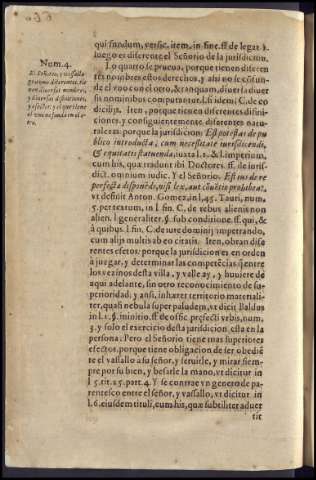 Num. 4.
El Señorio, y vasallage
qui fundum, versic. item, in fine. ff. de legat. 3.
luego es diferente el Señorio de la jurisdicion.
Lo quarto se prueua, porque tienen diferentes nombres estos derechos, y assi no se confunde el vno con el otro, & tanquam, diuersa diuersis nominibus
Iten, porque tienen diferentes difiniciones, y consiguientemente diferentes naturalezas: porque la jurisdicion: Est potestas de publico introducta, cum necessitate iurisdicendi,
& equitatis statuenda, iuxta l. 1. & l. imperium,
cum his, quæ tradunt ibi Doctores ff. de jurisdict. omnium iudic. Y el Señorio. Est ius de re
perfectè disponēdi, nisi lex, aut cōuētio prohibeat,
vt definit Anton. Gomez, in l. 45. Tauri, num.
5. per textum, in l. fin. C. de rebus alienis non
alien. l. generaliter. §. sub conditione. ff. qui, &
à quibus. l. fin. C. de iure domini impetrando,
cum alijs multis ab eo citatis. Iten, obran diferentes efetos: porque la jurisdicion es en orden
à juzgar, y determinar las competēcias q̄ entre
los vezinos desta villa, y valle ay, y huuiere de
aqui adelante, sin otro reconocimiento de superioridad: y ansi, inhæret territorio materialiter, quasi nebula super paludem, vt dicit Baldus
in l. 1. §. in initio. ff. de offic. præfecti vrbis, num.
3. y solo el exercicio desta jurisdicion esta en la
persona. Pero el Señorio tiene mas superiores
efectos, porque tiene obligacion de ser obediēte el vasallo a su señor, y seruirle, y mirar siempre por su bien, y besarle la mano, vt dicitur in
l. 5. tit. 25. part. 4. Y se contrae vn genero de parentesco entre el señor, y vassallo, vt dicitur in
l. 6. eiusdem tituli, cum his, quæ subtiliter aduertit